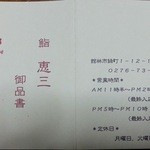 鮨 恵三
御品書
館林市緑町1-12-1
0276-73-
＊営業時間＊
AM11時半～PM2
(最終入
PM5時～PM10時
(最終入
＊定休日＊
月曜日、火曜